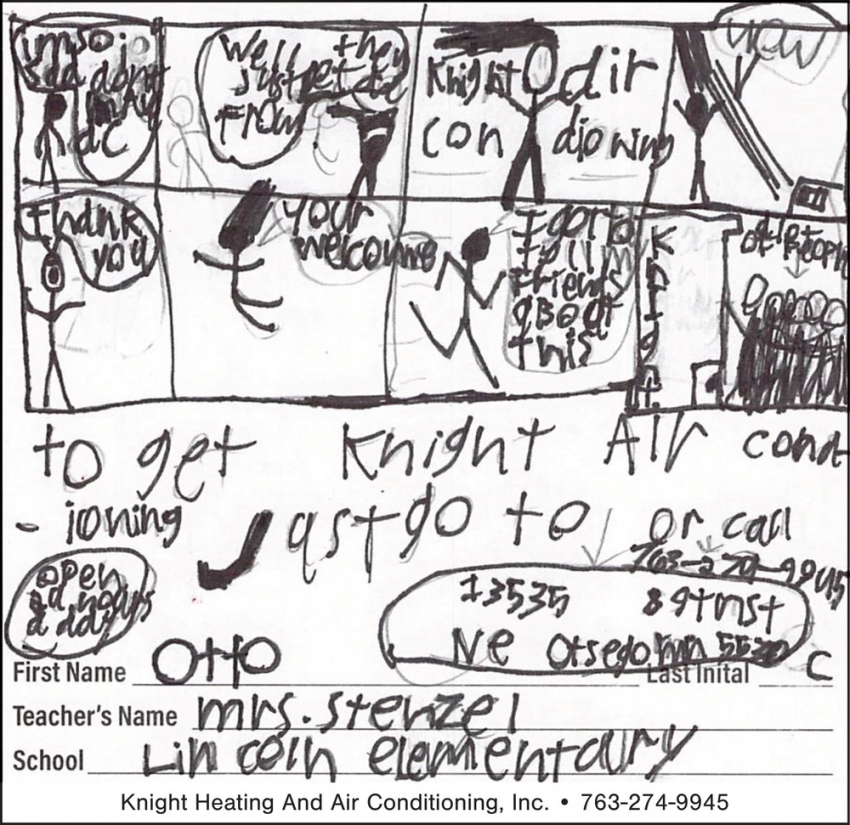 imso
sad dont
ac
Well they
just
From
Knight air
con dioning
Thank
you
your
welcome
I gotto
tell my
Friends
aBout
this
Knight
of People
to get Knight Air cond
- ioning Just go to or call
open
hours
a day
13535 89th st
NE Otsego mn
First Name Otto Last Inital C
Teacher's Name mrs. Stenzel
School Lincoln elementaury
Knight Heating And Air Conditioning, Inc. • 763-274-9945